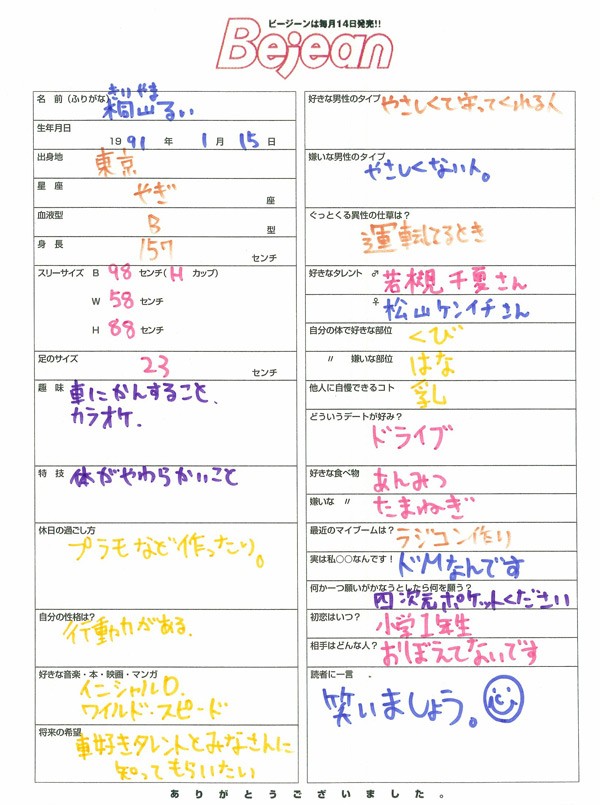 ビージーンは毎月14日発売!!
Bejean
名　前（ふりがな）
きりやま
桐山るい
生年月日
19 91 年 1 月 15 日
出身地
東京
星　座
やぎ 座
血液型
B 型
身　長
157 センチ
スリーサイズ B 98 センチ( H カップ)
W 58 センチ
H 88 センチ
足のサイズ
23 センチ
趣　味
車にかんすること、
カラオケ.
特　技
体がやわらかいこと
休日の過ごし方
プラモなど作ったり。
自分の性格は?
行動力がある.
好きな音楽・本・映画・マンガ
イニシャルD.
ワイルド・スピード
将来の希望
車好きタレントとみなさんに
知ってもらいたい
好きな男性のタイプ
やさしくて守ってくれる人
嫌いな男性のタイプ
やさしくない人。
ぐっとくる異性の仕草は?
運転してるとき
好きなタレント ♂ 若槻千夏さん
♀ 松山ケンイチさん
自分の体で好きな部位
くび
〃 嫌いな部位
はな
他人に自慢できるコト
乳
どういうデートが好み?
ドライブ
好きな食べ物
あんみつ
嫌いな 〃
たまねぎ
最近のマイブームは?
ラジコン作り
実は私○○なんです!
ドMなんです
何か一つ願いがかなうとしたら何を願う?
四次元ポケットください
初恋はいつ?
小学1年生
相手はどんな人?
おぼえてないです
読者に一言
笑いましょう。
ありがとうございました。